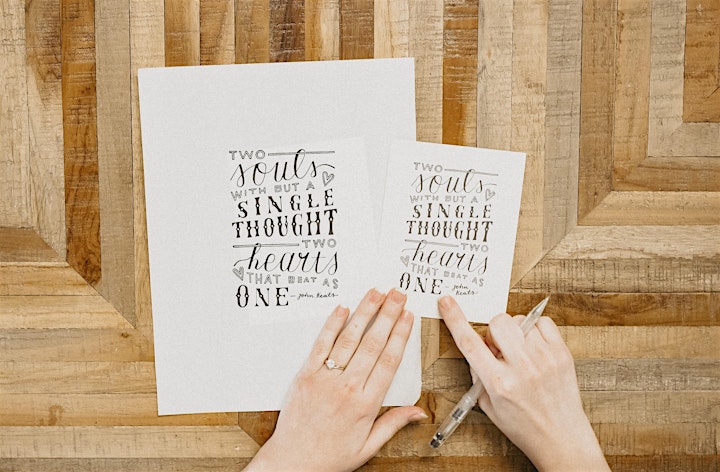 TWO
souls
WITH BUT A
SINGLE
THOUGHT
TWO
hearts
THAT BEAT AS
ONE - John Keats
TWO
souls
WITH BUT A
SINGLE
THOUGHT
TWO
hearts
THAT BEAT AS
ONE - John Keats